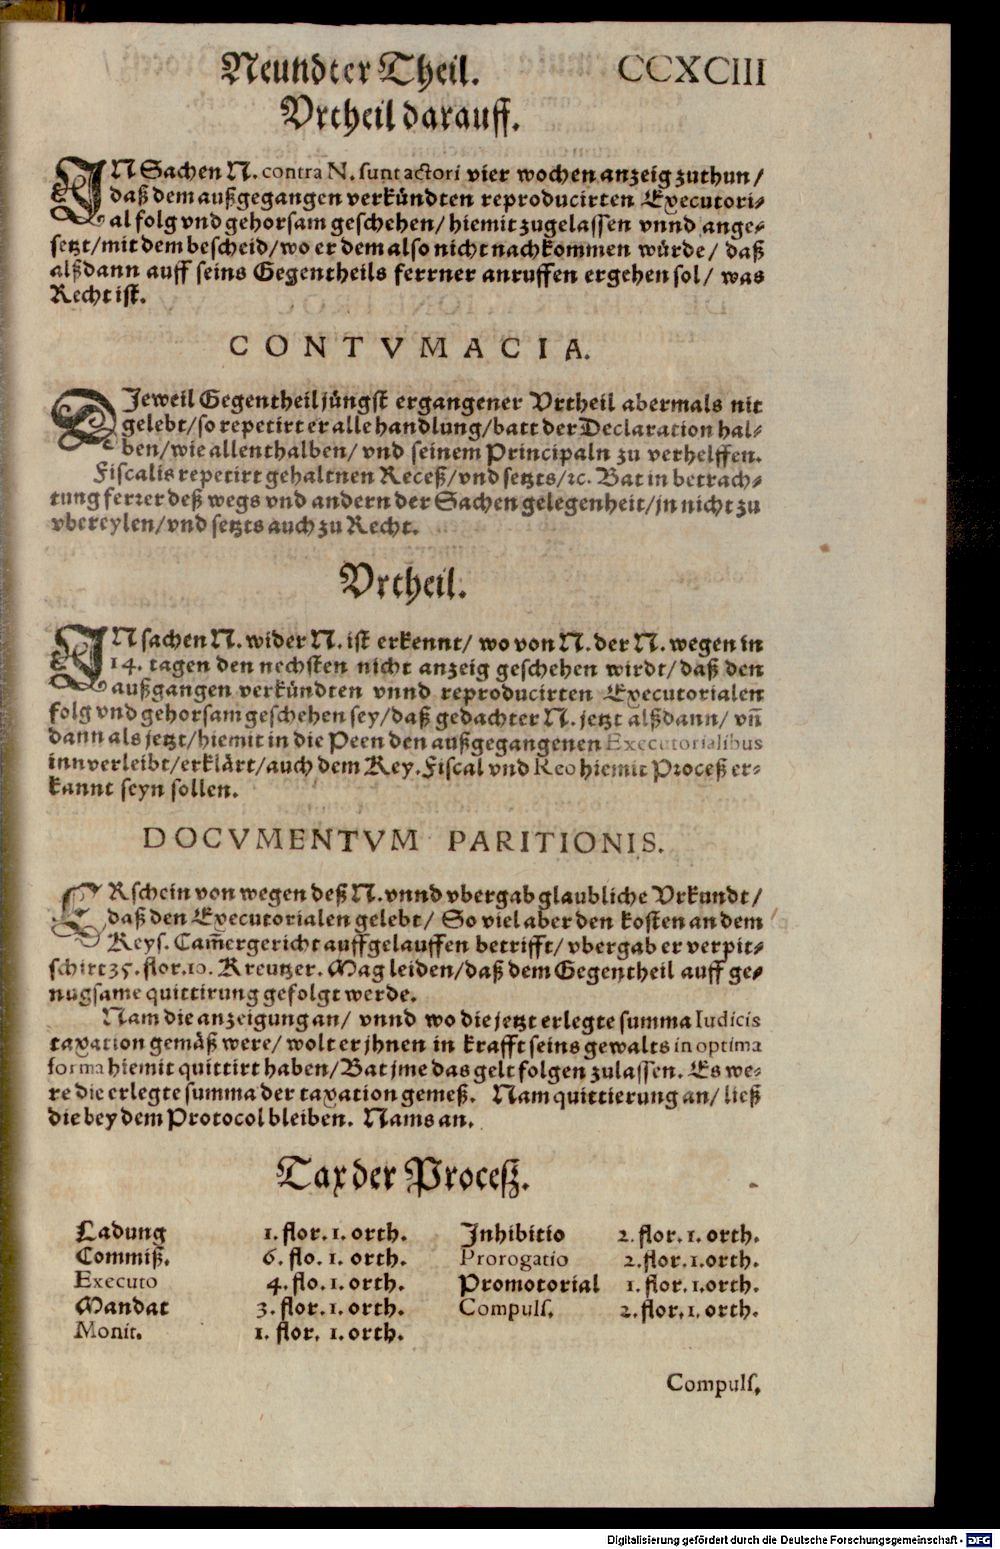 Neundter Theil. CCXCIII
Vrtheil darauff.
IN Sachen N. contra N. sunt actori vier wochen anzeig zuthun/
daß dem außgegangen verkündten reproducirten Executori-
al folg vnd gehorsam geschehen/ hiemit zugelassen vnnd ange-
setzt/ mit dem bescheid/ wo er dem also nicht nachkommen würde/ daß
alßdann auff seins Gegentheils ferrner anruffen ergehen sol/ was
Recht ist.
CONTVMACIA.
DJeweil Gegentheil jüngst ergangener Vrtheil abermals nit
gelebt/ so repetirt er alle handlung/ batt der Declaration hal-
ben/ wie allenthalben/ vnd seinem Principaln zu verhelffen.
Fiscalis repetirt gehaltnen Receß/ vnd setzts/ ꝛc. Bat in betrach-
tung ferrer deß wegs vnd andern der Sachen gelegenheit/ jn nicht zu
vbereylen/ vnd setzts auch zu Recht.
Vrtheil.
IN sachen N. wider N. ist erkennt/ wo von N. der N. wegen in
14. tagen den nechsten nicht anzeig geschehen wirdt/ daß den
außgangen verkündten vnnd reproducirten Executorialen
folg vnd gehorsam geschehen sey/ daß gedachter N. jetzt alßdann/ vñ
dann als jetzt/ hiemit in die Peen den außgegangenen Executorialibus
innverleibt/ erklärt/ auch dem Key. Fiscal vnd Reo hiemit Proceß er-
kannt seyn sollen.
DOCVMENTVM PARITIONIS.
ERschein von wegen deß N. vnnd vbergab glaubliche Vrkundt/
daß den Executorialen gelebt/ So viel aber den kosten an dem
Keys. Cam̃ergericht auffgelauffen betrifft/ vbergab er verpit-
schirt 35. flor. 10. Kreutzer. Mag leiden/ daß dem Gegentheil auff ge-
nugsame quittirung gefolgt werde.
Nam die anzeigung an/ vnnd wo die jetzt erlegte summa Iudicis
taxation gemäß were/ wolt er jhnen in krafft seins gewalts in optima
forma hiemit quittirt haben/ Bat jme das gelt folgen zulassen. Es we-
re die erlegte summa der taxation gemeß. Nam quittierung an/ ließ
die bey dem Protocol bleiben. Nams an.
Tax der Proceß.
Ladung 1. flor. 1. orth. Jnhibitio 2. flor. 1. orth.
Commiß. 6. flo. 1. orth. Prorogatio 2. flor. 1. orth.
Executo 4. flo. 1. orth. Promotorial 1. flor. 1. orth.
Mandat 3. flor. 1. orth. Compuls. 2. flor. 1. orth.
Monit. 1. flor. 1. orth.
Compuls.
Digitalisierung gefördert durch die Deutsche Forschungsgemeinschaft - DFG